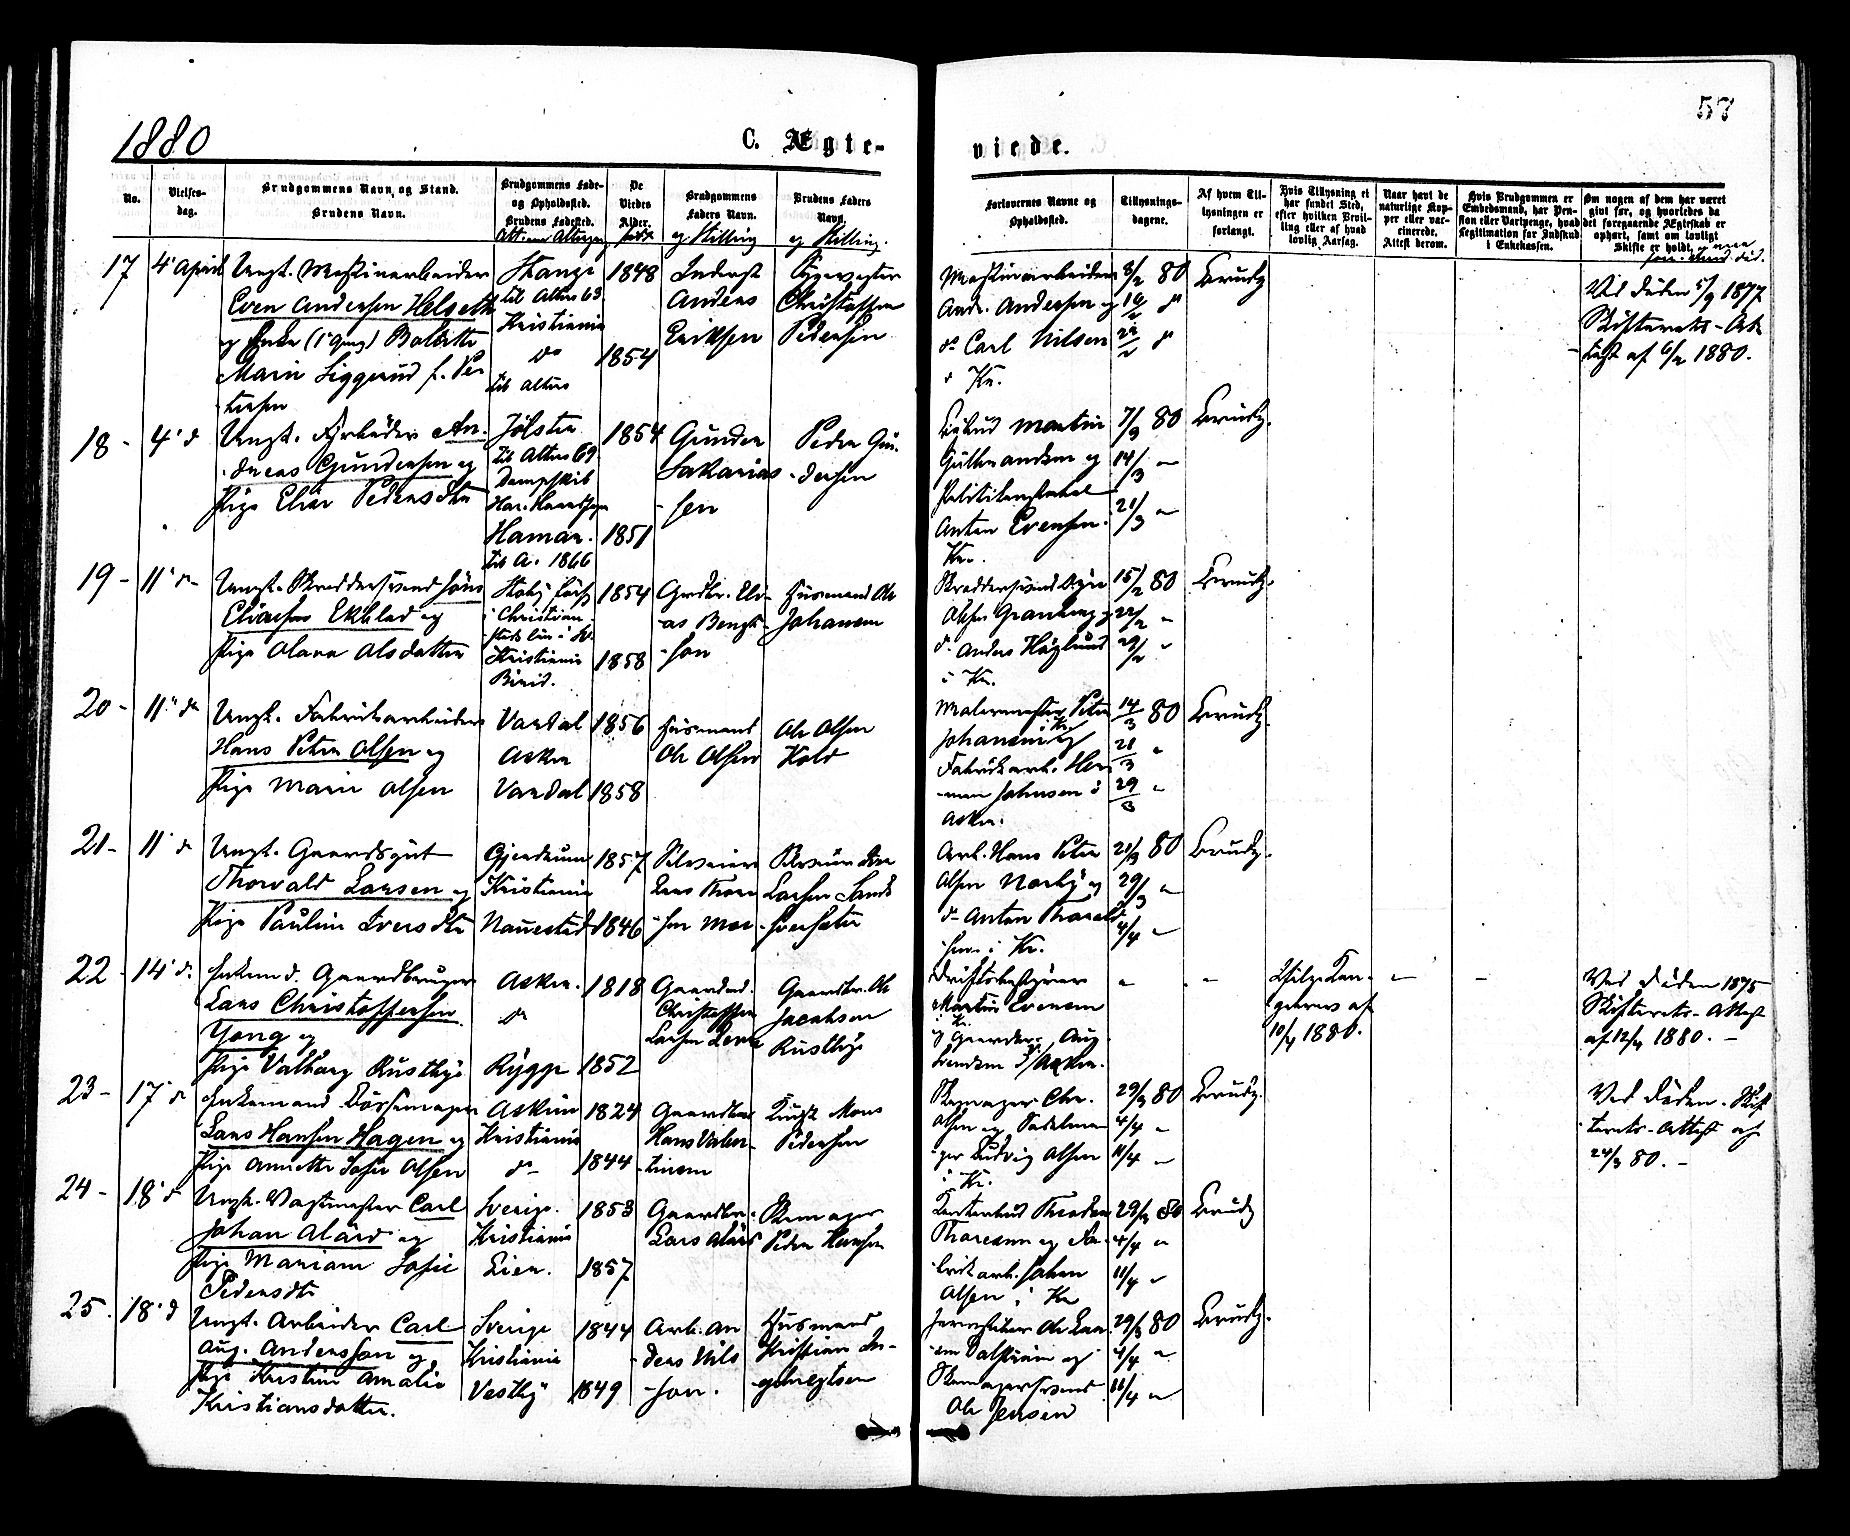 1880
C. Ægte-
viede.
57
No.
Vielses-
dag.
Brudgommens Navn, og Stand.
Brudens Navn.
Brudgommens Føde-
og Opholdssted.
Brudens Fødested.
De
Viedes
Alder.
født
Brudgommens
Faders Navn.
og Stilling
Brudens Faders
Navn.
og Stilling.
Forlovernes Navne og
Opholdssted.
Tillysnings-
dagene.
Af hvem Til-
lysningen er
forlangt.
Hvis Tillysning ei
har fundet Sted,
efter hvilken Bevil-
ling eller af hvad
lovlig Aarsag.
Naar havt de
naturlige Kop-
per eller vac-
cinerede.
Attest derom.
Hvis Brudgommen er
Embedsmand, har Pen-
sion eller Vartpenge, hvad
Legitimation for Indskud
i Enkekassen.
Om nogen af dem har været
givt før, og hvorledes da
det foregaaende Ægteskab er
ophørt, samt om lovligt
Skifte er holdt,
17
4' April
Ungk. Maskinarbeider
Even Andersen Helseth
og Enke (1' Gang)
Marie Siggerud f. Pe-
dersen
Stange
til Alters 63
Kristiania
do
til Alters
1848
1854
Inderst
Anders
Eriksen
Christoffer
Pedersen
Maskinarbeider
Andr. Andersen og
do Carl Nilsen
Kr.
8/2 80
Brudg.
Ved Døden 5/9 1877
Skifterets-At-
test af 6/2 1880.
18 -
4' d
Ungk. Fyrbøder An-
dreas Gundersen og
Pige Elise Pedersdtr
Jølster
til Alters 69
Dampskib
Har. Haarfagr
Hamar.
til A. 1866
1854
1851
Gunder
Sakarias-
sen
Peder Gun-
dersen
Martin
Gulbrandsen og
Politikonstabel
Anton Evensen.
Kr.
7/3 80
14/3 -
21/3 -
Brudg.
19 -
11' d-
Ungk. Skreddersvend Jöns
Eliason Ekblad og
Pige Olava Olsdatter
i Christian-
stads län i Sv.
Kristiania
Biri d.
1854
1858
Grdbr. Eli-
as Bengt-
son
Husmand Ole
Johansen
Skreddersvend
Olsen Granberg og
do Anders Höglund
i Kr.
15/2 80
22/2 -
29/2 -
Brudg.
20 -
11' d
Ungk. Fabrikarbeider
Hans Peter Olsen og
Pige Marie Olsen
Vardal
Asker
Vardal
1856
1858
Husmand
Ole Olsen
Ole Olsen
Kold
Malermester Peter
Johansen i Kr. og
Fabrikarb. Her-
man Johnsen i
Asker.
14/3 80
21/3 -
29/3 -
Brudg.
21 -
11' d
Ungk. Gaardsgut
Thorvald Larsen og
Pige Pauline Iversdtr
Gjerdrum
Kristiania
Nannestad
1857
1846
Selveier
Lars Thor-
sen Mor-
Selveier Iver
Larsen Sand-
Arb. Hans Peter
Olsen Norby og
do Anton Thorvald-
sen i Kr.
21/3 80
29/3 -
4/4 -
Brudg.
22 -
14' d.
Enkemd. Gaardbruger
Lars Christoffersen
Yong og
Pige Valborg Rustbye
Asker.
do
Rygge
1818
1852
Gaardmd.
Christoffer
Larsen
Gaardbr. Ole
Jacobsen
Rustbye
Driftsbestyrer
Martin Evensen
i Kr.
og Gaardbr. Aug.
Svendsen i Asker.
-
-
10/4 1880.
-
-
Ved Døden 1875
Skifterets-Attest
af 12/4 1880. -
23 -
17' d
Enkemand Børsemager
Lars Hansen Hagen og
Pige Annette Sofie Olsen
Askim
Kristiania
do-
1824
1844
Gaardbr.
Hans Valen-
tinsen
Mons
Pedersen
Skomager Chr.
Olsen og Sadelma-
ger Ludvig Olsen
i Kr.
29/3 80
4/4 -
11/4 -
Brudg.
Ved Døden. Skif-
terets-Attest af
24/3 80. -
24 -
18' d
Ungk. Vagtmester Carl
Johan Alärd og
Pige Mariane Sofie
Pedersdtr
Sverige.
Kristiania
Lier.
1853
1857
Gaardbr.
Lars Alärd
Skomager
Peder Hansen
Theodor
Thoresen og Fa-
brikarb. Johan
Olsen i Kr
29/3 80
4/4 -
11/4 -
Brudg
25 -
18' d
Ungk. Arbeider Carl
Aug. Andersson og
Pige Kristine Amalie
Kristiansdatter.
Sverige
Kristiania
Vestby
1844
1849
Arb. An-
ders Nils-
son.
Husmand
Kristian In-
gebregtsen
Jernstøber Ole Lar-
sen og
Skomagersvend
Ole Jensen
29/3 80
4/4 -
11/4 -
Brudg.